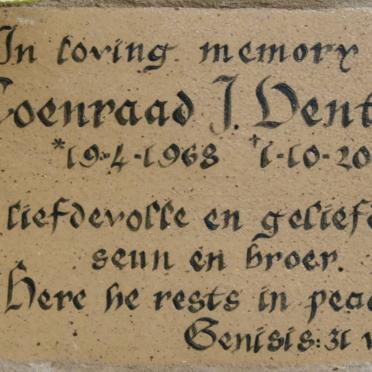 In loving memory
Coenraad J.
*19-4-1968 †1-10-20
liefdevolle en
seun en broer.
Here he rests in
Genisis: 31 v